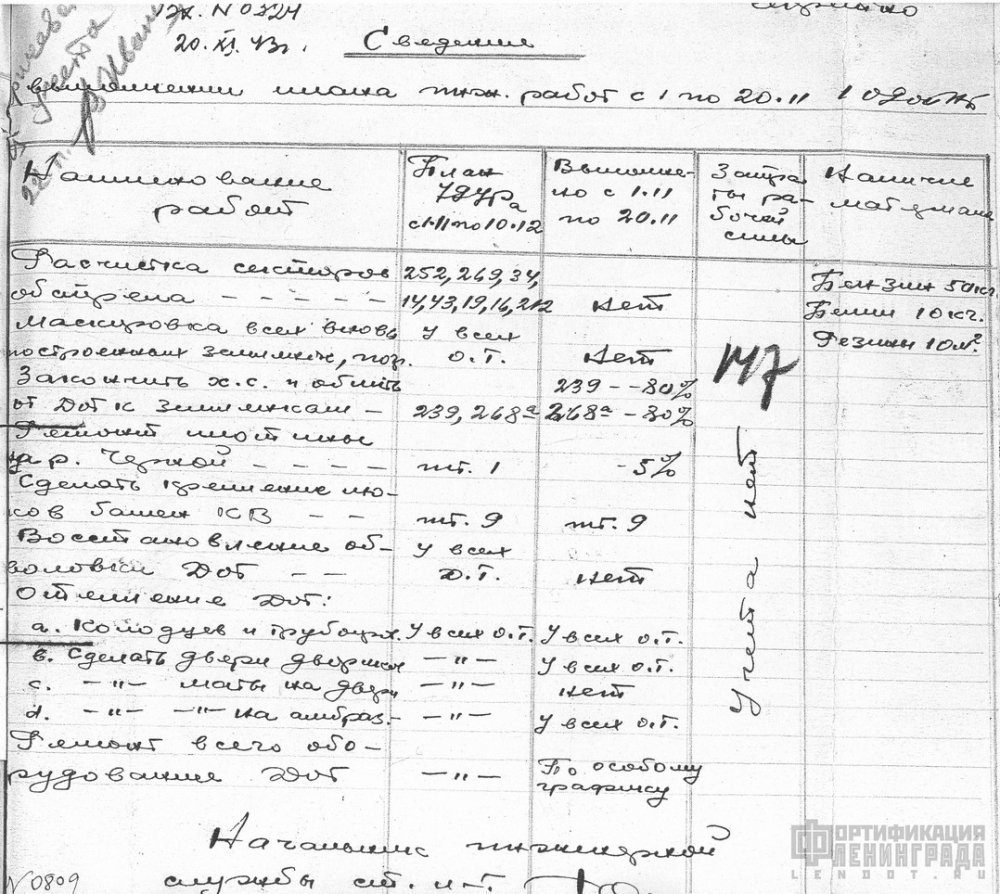 № 0324
20.XI.43г.
Сведения
выполнении плана инж. работ с 1 по 20.11
Наименование работ
План УДУРа с 1.11 по 10.12
Выполнено с 1.11 по 20.11
Затраты рабочей силы
Наличие материала
Расчистка секторов 252, 269, 34,
обстрела – – – – – 14, 43, 19, 16, 212 нет
Бензин 50кг.
Белил 10кг.
Резины 10м².
Маскировка всех вновь у всех
построенных землянок, поз. О.Т. нет
Закончить х.с. и 239 – – 80%
от Дот к землянкам – 239, 268а 268а – 80%
147
Ремонт плотины
на р. Черной – – – – шт. 1 – 5%
Сделать крепление лю-
ков башен КВ – – шт. 9 шт. 9
Восстановление об- у всех
воловки Дот – – О.Т. нет
Утепление Дот:
а. Колодцев и у всех О.Т. у всех О.Т.
в. Сделать двери – " – у всех О.Т.
с. – " – маты на двери – " – нет
d. – " – – " – на амбраз. – " – у всех О.Т.
Ремонт всего обо-
рудование Дот – " – По особому графику
Учета нет
Начальник инженерной
службы
№ 0809
ФОРТИФИКАЦИЯ
ЛЕНИНГРАДА
LENDOT.RU